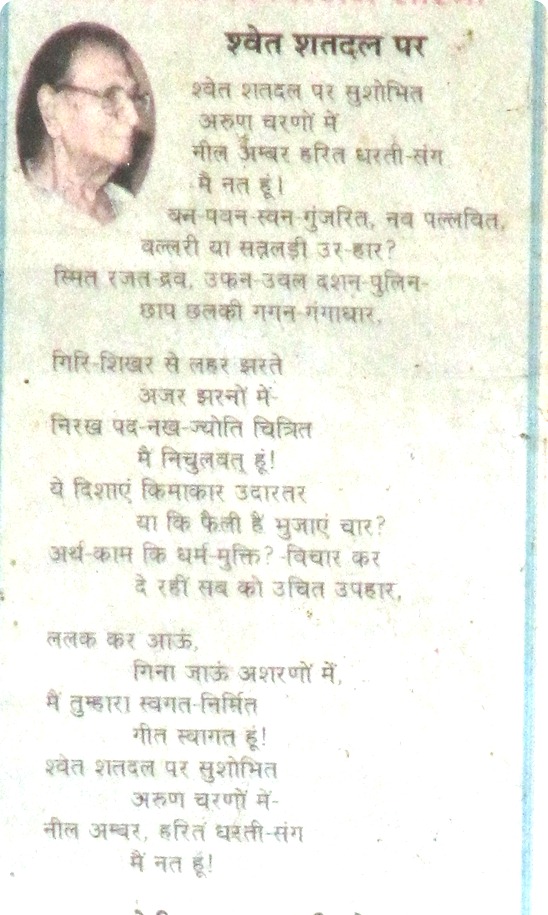 श्वेत शतदल पर
श्वेत शतदल पर सुशोभित
अरुण चरणों में
नील अम्बर हरित धरती-संग
मैं नत हूं।
वन-पवन-स्वन-गुंजरित, नव पल्लवित,
वल्लरी या सतलड़ी उर-हार?
स्मित रजत-द्रव, उफन-उवल दशन-पुलिन-
छाप छलकी गगन-गंगाधार,
गिरि-शिखर से लहर झरते
अजर झरनों में-
निरख पद-नख-ज्योति चित्रित
मैं निचुलवत् हूं!
ये दिशाएं किमाकार उदारतर
या कि फैली हैं भुजाएं चार?
अर्थ-काम कि धर्म-मुक्ति? -विचार कर
दे रहीं सब को उचित उपहार,
ललक कर आऊं,
गिना जाऊं अशरणों में,
मैं तुम्हारा स्वगत-निर्मित
गीत स्वागत हूं!
श्वेत शतदल पर सुशोभित
अरुण चरणों में-
नील अम्बर, हरित धरती-संग
मैं नत हूं!